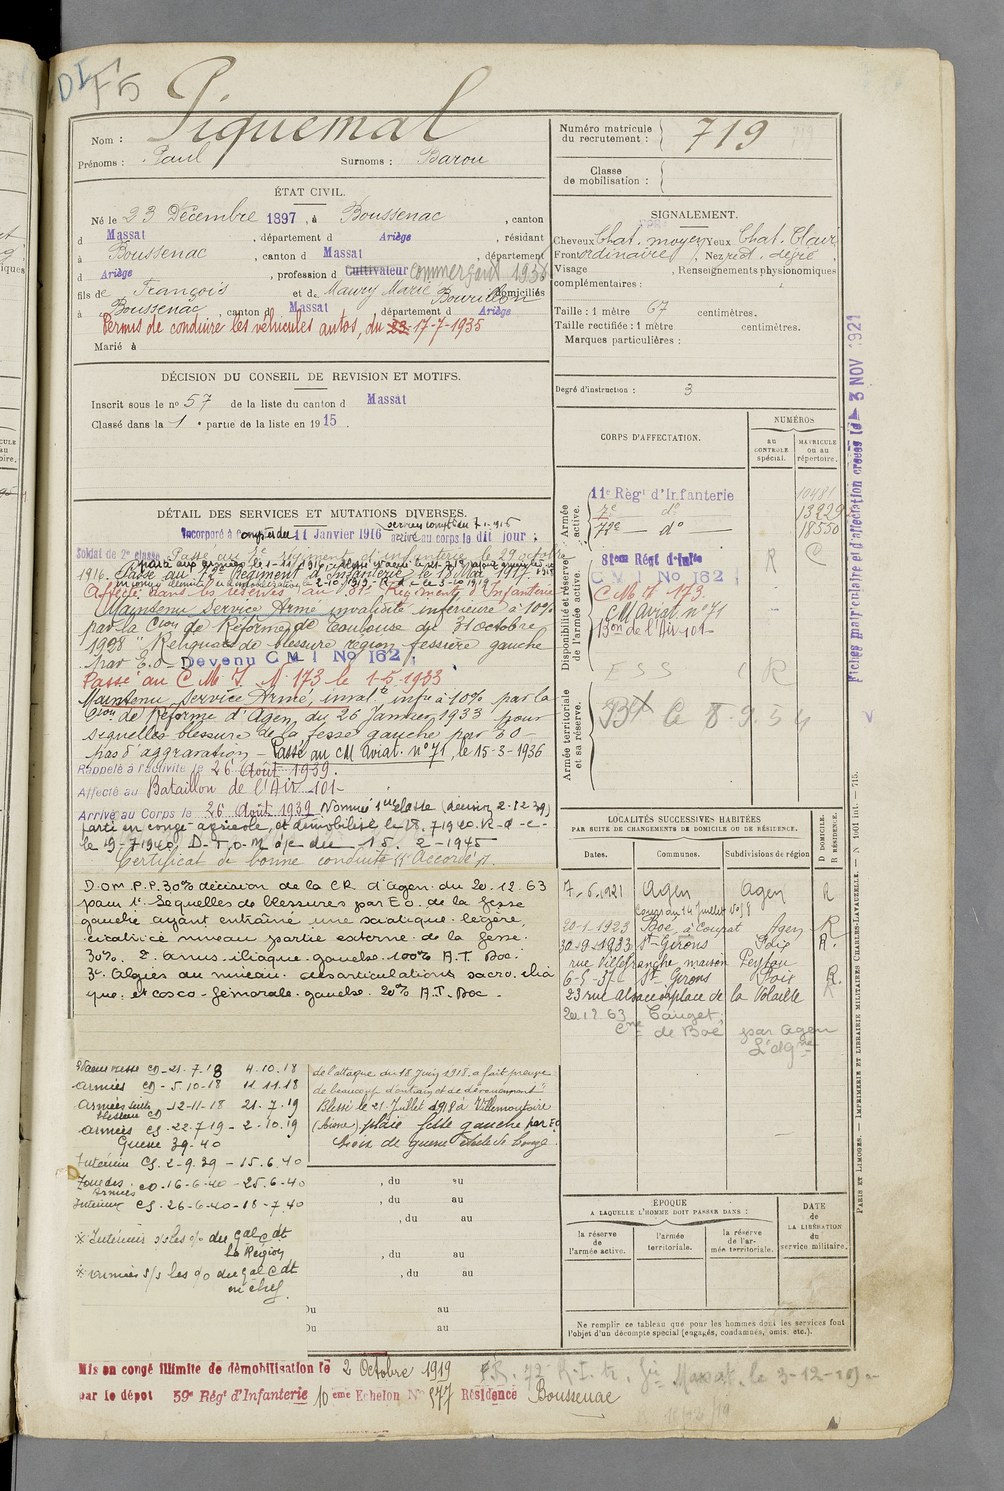 DI F5
Nom : Piquemal
Prénoms : Paul Surnoms : Barou
ÉTAT CIVIL.
Né le 23 Décembre 1897, à Boussenac, canton
d Massat, département d Ariège, résidant
à Boussenac, canton d Massat, département
d Ariège, profession d Cultivateur Commerçant 1936
fils de François et de Maury Marie Bourillon domiciliés
à Boussenac, canton d Massat département d Ariège
Permis de conduire les véhicules autos, du 23- 17-7-1935
Marié à
DÉCISION DU CONSEIL DE REVISION ET MOTIFS.
Inscrit sous le no 57 de la liste du canton d Massat
Classé dans la 1 e partie de la liste en 1915.
DÉTAIL DES SERVICES ET MUTATIONS DIVERSES.
services compt du 7-1-1916
Incorporé à compter du 11 Janvier 1916 arrivé au corps le dit jour ;
Soldat de 2e classe Passé au 7e régiment d'infanterie le 29 octobre
1916. Passé au 72e Régiment d'Infanterie le 15 Mai 1917.
Affecté dans les réserves au 81e Régiment d'Infanterie
Maintenu Service Armé invalidité inférieure à 10%
par la Cion de Réforme de Toulouse du 31 octobre
1928 "Reliquats de blessure région fessière gauche
par E.O- Devenu C M I No 162 ;
Passé au C M I N° 173 le 1-5-1933
Maintenu Service Armé, invalté infre à 10% par la
Cion de Réforme d'Agen du 26 Janvier 1933 pour
séquelles blessure de la fesse gauche par E O-
pas d'aggravation - Passé au CM Aviat. n°71, le 15-3-1936
Rappelé à l'activité le 26 Août 1939.
Affecté au Bataillon de l'Air 101-
Arrivé au Corps le 26 Août 1939 Nommé 1ère classe (décision 2-12 39)
parti en congé agricole, et démobilisé le 18.7 1940. R-d-c-
le 19-7 1940, D-T,o-M d/c du 15. 2-1945
Certificat de bonne conduite "Accordé".
D.O.M. P.P. 30% décision de la CR d'Agen du 20.12.63
pour 1° Sequelles de blessures par E.O. de la fesse
gauche ayant entraîné une sciatique légère,
cicatrice niveau partie externe de la fesse.
30%. 2. anus iliaque gauche 100% A.T. Doc.
3° Algies au niveau des articulations sacro iliaque
et coxo-fémorale gauche. 20% A.T. Doc.
CD-21-7-18 4.10.18
Armées CD-5-10-18 11.11.18
Armées 12-11-18 21-7-19
Armées CS-22-7-19 - 2-10.19
Guerre 39-40
Intérieur CS. 2-9.39 - 15.6.40
Zone des Armées CD-16-6-40 - 25-6-40
Intérieur CS-26-6-40-18-7.40
* Intérieur s/s les o/ du Gal Cdt
la Région
* Armées s/s les o/o du Gal Cdt
en chef.
de l'attaque du 18 Juin 1918. a fait preuve
de beaucoup d'entrain et de dévouement"
Blessé le 21 Juillet 1918 à Villemontoire
(Aisne) plaie fesse gauche par E.O
Croix de guerre étoile de bronze.
, du au
, du au
, du au
, du au
, du au
Du au
Du au
Mis en congé illimité de démobilisation le 2 Octobre 1919
par le dépot 59e Régt d'Infanterie 10eme Echelon No 577 Résidence Boussenac
Numéro matricule du recrutement : 719
Classe de mobilisation :
SIGNALEMENT.
Cheveux Chat. moyen Yeux Chat. Clair
Front ordinaire, Nez rect. dépré,
Visage , Renseignements physionomiques
complémentaires :
Taille : 1 mètre 67 centimètres.
Taille rectifiée : 1 mètre centimètres.
Marques particulières :
Degré d'instruction : 3
CORPS D'AFFECTATION.
NUMÉROS
AU CONTROLE spécial.
MATRICULE ou au répertoire.
Armée active.
11e Régt d'Infanterie 10481
7e do 13229
72e do 18550
Disponibilité et réserve de l'armée active.
81eme Régt d'Infie R C
C M I No 162
C M I 173.
CM Aviat. n°71
Bon de l'Air 101-
E S S R
Armée territoriale et sa réserve.
le 8.9.54
LOCALITÉS SUCCESSIVES HABITÉES
PAR SUITE DE CHANGEMENTS DE DOMICILE OU DE RÉSIDENCE.
Dates. Communes. Subdivisions de région
D DOMICILE. R RÉSIDENCE.
7-5.1921 Agen Agen R
Cours du 14 Juillet n°78
20-1-1923 Boé, à Coupat Agen R
30-9-1933 St-Girons Foix R.
rue Villefranche, maison Peytou
6-5-37 St-Girons Foix R.
23 rue Alsace, place de la Volaille
20 12 63 Cauget
Cne de Boé par Agen
L. et Gne
ÉPOQUE
A LAQUELLE L'HOMME DOIT PASSER DANS :
la réserve de l'armée active.
l'armée territoriale.
la réserve de l'armée territoriale.
DATE de LA LIBÉRATION du service militaire.
Ne remplir ce tableau que pour les hommes dont les services font
l'objet d'un décompte spécial (engagés, condamnés, omis, etc.).
Fiches matriculaire et d'affectation créées le 3 NOV 1921
PARIS ET LIMOGES. — IMPRIMERIE ET LIBRAIRIE MILITAIRES CHARLES-LAVAUZELLE. — N 1601 int. — 715.